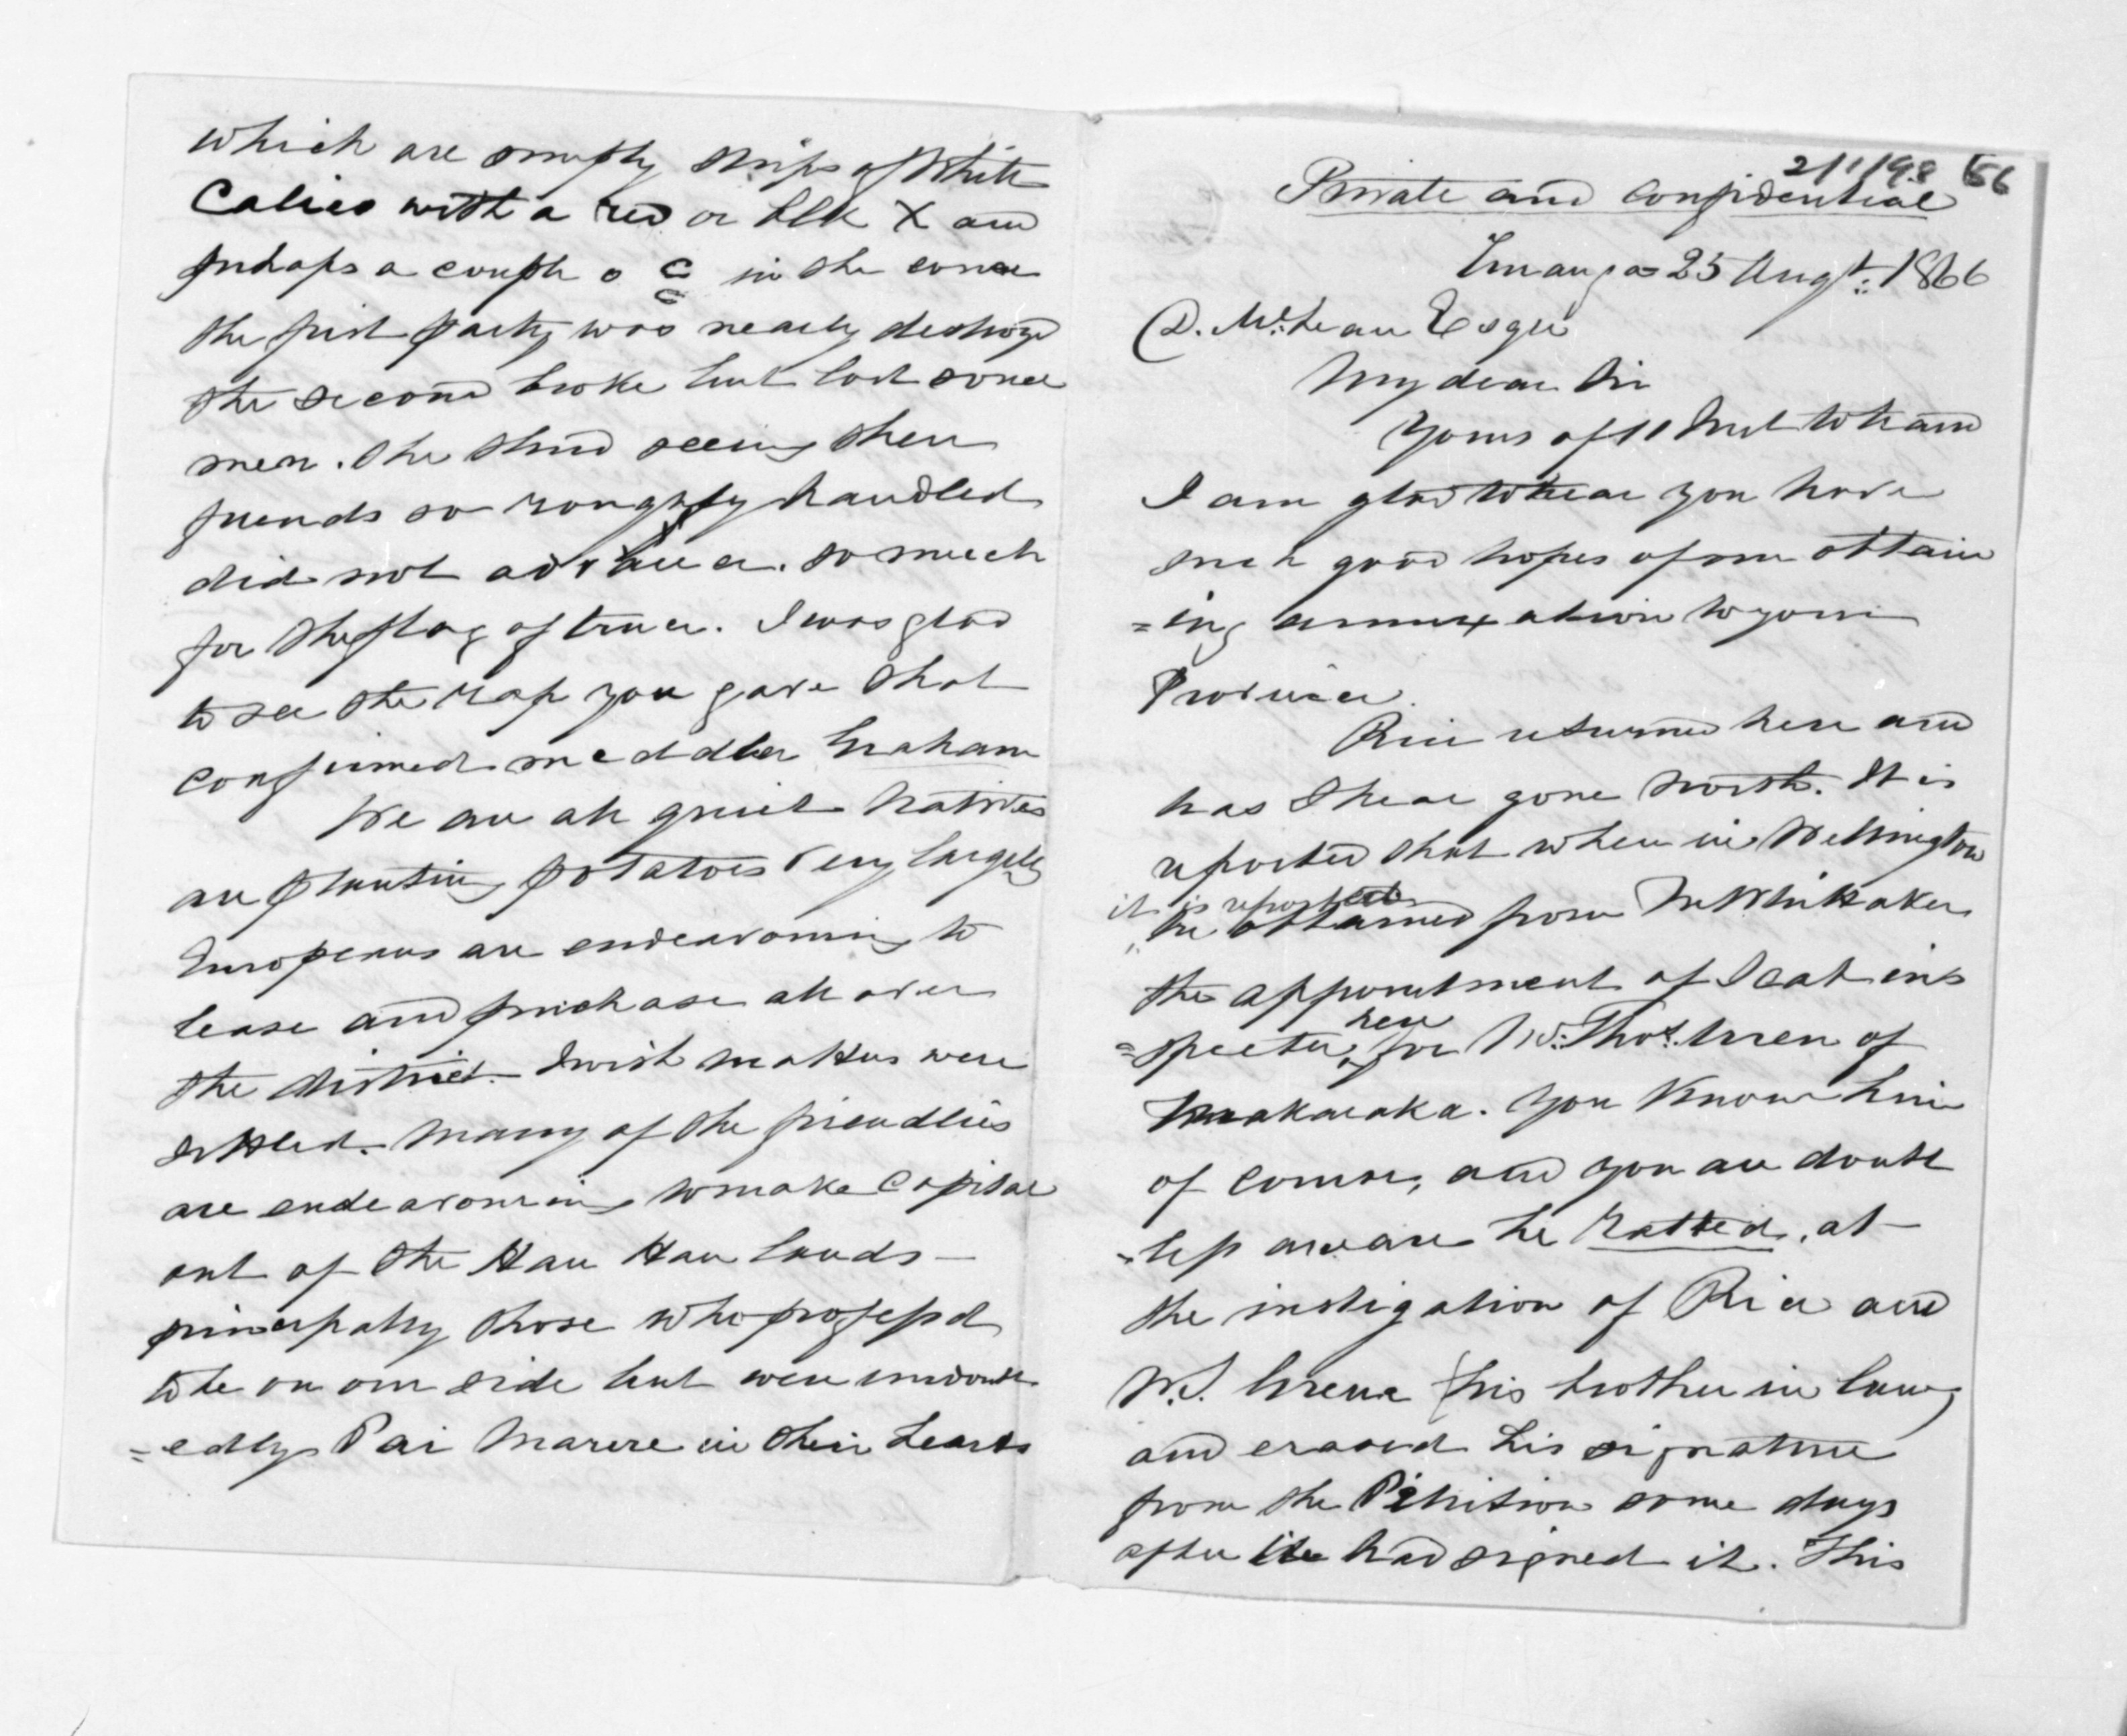 which are simply strips of White
Calico with a red or blk X and
perhaps a couple o C in the corner
the first party was nearly destroyd
the second broke but lost some
men. The third seeing their
friends so roughly handled
did not advance. so much
for the flag of truce. I was glad
to see the rap you gave that
confirmed meddler Graham
We are all quiet Natives
are planting potatoes very largely
Europeans are endeavouring to
lease and purchase all over
the district. I wish matters were
settled. Many of the friendlies
are endeavouring to make capital
out of the Hau Hau lands —
principally those who professd
to be on our side but were undoubt
=edly Pai Marere in their hearts
2/1/98 566
Private and confidential
Turanga 25 Augt: 1866
D. McLean Esqre
My dear Sir
Yours of 11 Inst to hand
I am glad to hear you have
such good hopes of our obtain
=ing annexation to your
Province.
Rice returned here and
has I hear gone North. It is
reported that when in Wellington
it is reported
he obtained from Mr Whittaker
the appointment of Scab ins
=pector here for Mr. Thos. Uren of
Makaraka. You know him
of course, and you are doubt
=less aware he ratted, at
the instigation of Rice and
W.S. Greene (his brother in law)
and erased his signature
from the Petition some days
after he had signed it. This